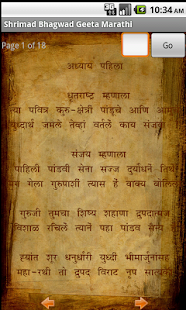 10:34 AM
Shrimad Bhagwad Geeta Marathi
Page 1 of 18
Go
अध्याय पहिला
धृतराष्ट्र म्हणाला
त्या पवित्र कुरु-क्षेत्री पांडूचे आणि आमु
युद्धार्थ जमले तेव्हां वर्तले काय संजया
संजय म्हणाला
पाहिली पांडवी सेना सज्ज दुर्योधने तिथे
मग गेला गुरुपाशी त्यास हें वाक्य बोलि
गुरुजी तुमचा शिष्य शहाणा द्रुपदात्मज
विशाळ रचिलें त्यानें पहा पांडव सैन्य
ह्यांत शूर धनुर्धारी युध्दीं भीमार्जुनांसम
महा-रथी तो द्रुपद विराट नृप सात्य